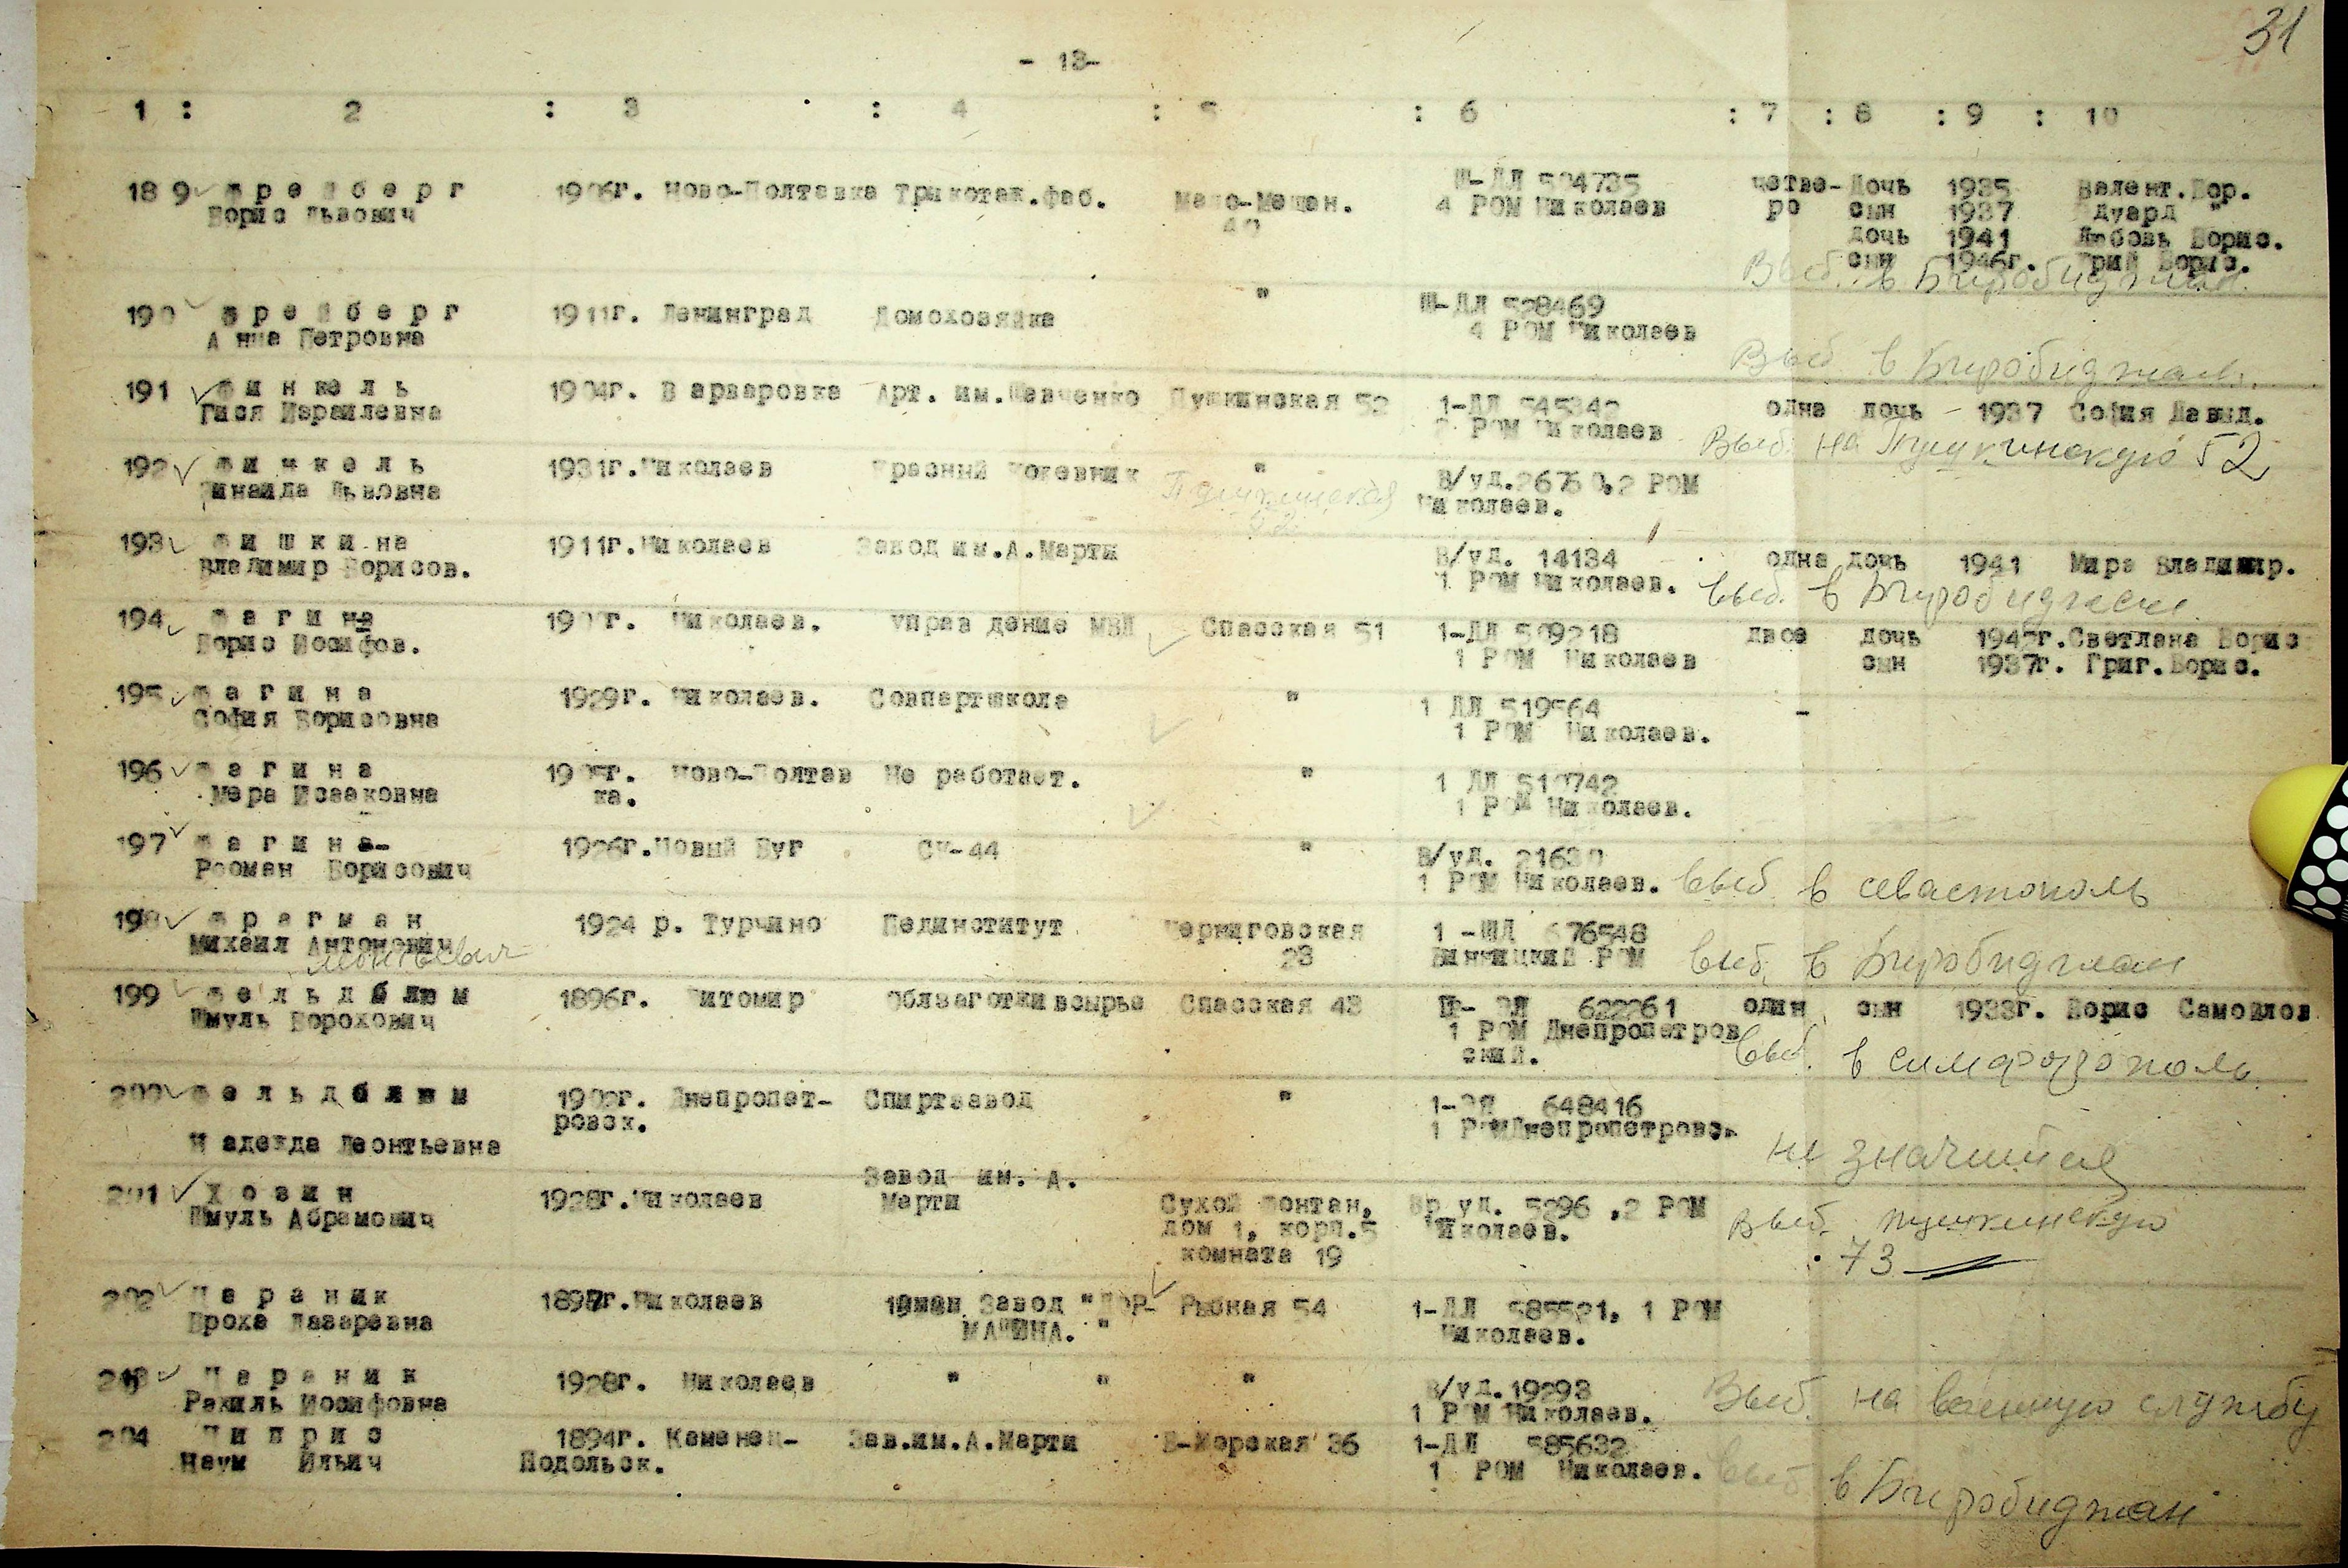 31
- 13-
1 : 2 : 3 : 4 : 5 : 6 : 7 : 8 : 9 : 10
189 Ф р е й б е р г 1906г. Ново-Полтавка Трикотаж.фаб. Мало-Мещан. Ш-ДЛ 504735 четве- дочь 1935 Валент.Бор.
Борис Львович 40 4 РОМ Николаев ро сын 1937 Эдуард "
дочь 1941 Любовь Борис.
сын 1946г. Юрий Борис.
Выб. в Биробиджан.
190 Ф р е й б е р г 1911г. Ленинград Домохозяйка " Ш-ДЛ 528469
Анна Петровна 4 РОМ Николаев
Выб в Биробиджан.
191 Ф и н к е л ь 1904г. Варваровка Арт. им.Шевченко Пушкинская 52 1-ДЛ 545342 одна дочь - 1937 София Давид.
Гися Израилевна 2 РОМ Николаев
Выб. на Пушкинскую 52
192 Ф и н к е л ь 1931г.Николаев Красный кожевник " В/уд.26760,2 РОМ
Зинаида Львовна Пушкинская Николаев.
52
193 Ф и ш к и на 1911г.Николаев Завод им.А.Марти В/уд. 14134 одна дочь 1941 Мира Владимир.
Владимир Борисов. 1 РОМ Николаев.
выб. в Биробиджан
194 Ф а г и на Николаев. Управ дение МВД Спасская 51 1-ДЛ 509218 двое дочь 1947г.Светлана Борис
Борис Иосифов. 1 РОМ Николаев сын 1937г. Григ.Борис.
195 Ф а г и н а 1929г. Николаев. Совпартшкола " 1 ДЛ 519564 -
София Борисовна 1 РОМ Николаев.
196 Ф а г и н а Ново-Полтав Не работает. " 1 ДЛ 510742
Мера Исааковна ка. 1 РОМ Николаев.
197 Ф а г и н а- 1926г.Новый Буг СУ-44 " В/уд. 21630
Рооман Борисович 1 РОМ Николаев.
выб. в севастополь
198 Ф р а г м а н 1924 р. Турчино Пединститут Черниговская 1 -ШД 676548
Михаил Антонович 23 Винницкий РОМ
выб. в Биробиджан
199 Ф е л ь д б л ю м 1896г. Житомир Облзаготживсырье Спасская 43 Ш- ЭЛ 622261 один сын 1933г. Борис Самойлов
Шмуль Борохович 1 РОМ Днепропетров
ский.
выб. в симфорополь
200 Ф е л ь д б л ю м 1902г. Днепропет- Спиртзавод " 1-ЭЛ 648416
ровск. 1 РОМДнепропетровск
Надежда Леонтьевна
не значится
201 Х о з и н 1928г.Николаев Завод им. А. Сухой фонтан, Вр уд. 5296 .2 РОМ
Шмуль Абрамович Марти дом 1, корп.5 Николаев.
комната 19
Выб. пушкинскую
73
202 Ц а р а н и к 1897г.Николаев Завод "ДОР- Рыбная 54 1-ДЛ 585521, 1 РОМ
Броха Лазаревна МАШИНА. " Николаев.
203 Ц а р а н и к 1928г. Николаев " " " В/уд.19293
Рахиль Иосифовна 1 РОМ Николаев.
Выб. на военную службу
204 Ц и п р и с 1894г. Каменец- Зав.им.А.Марти В-Морская 36 1-ДЛ 585632
Наум Ильич Подольск. 1 РОМ Николаев.
выб в Биробиджан